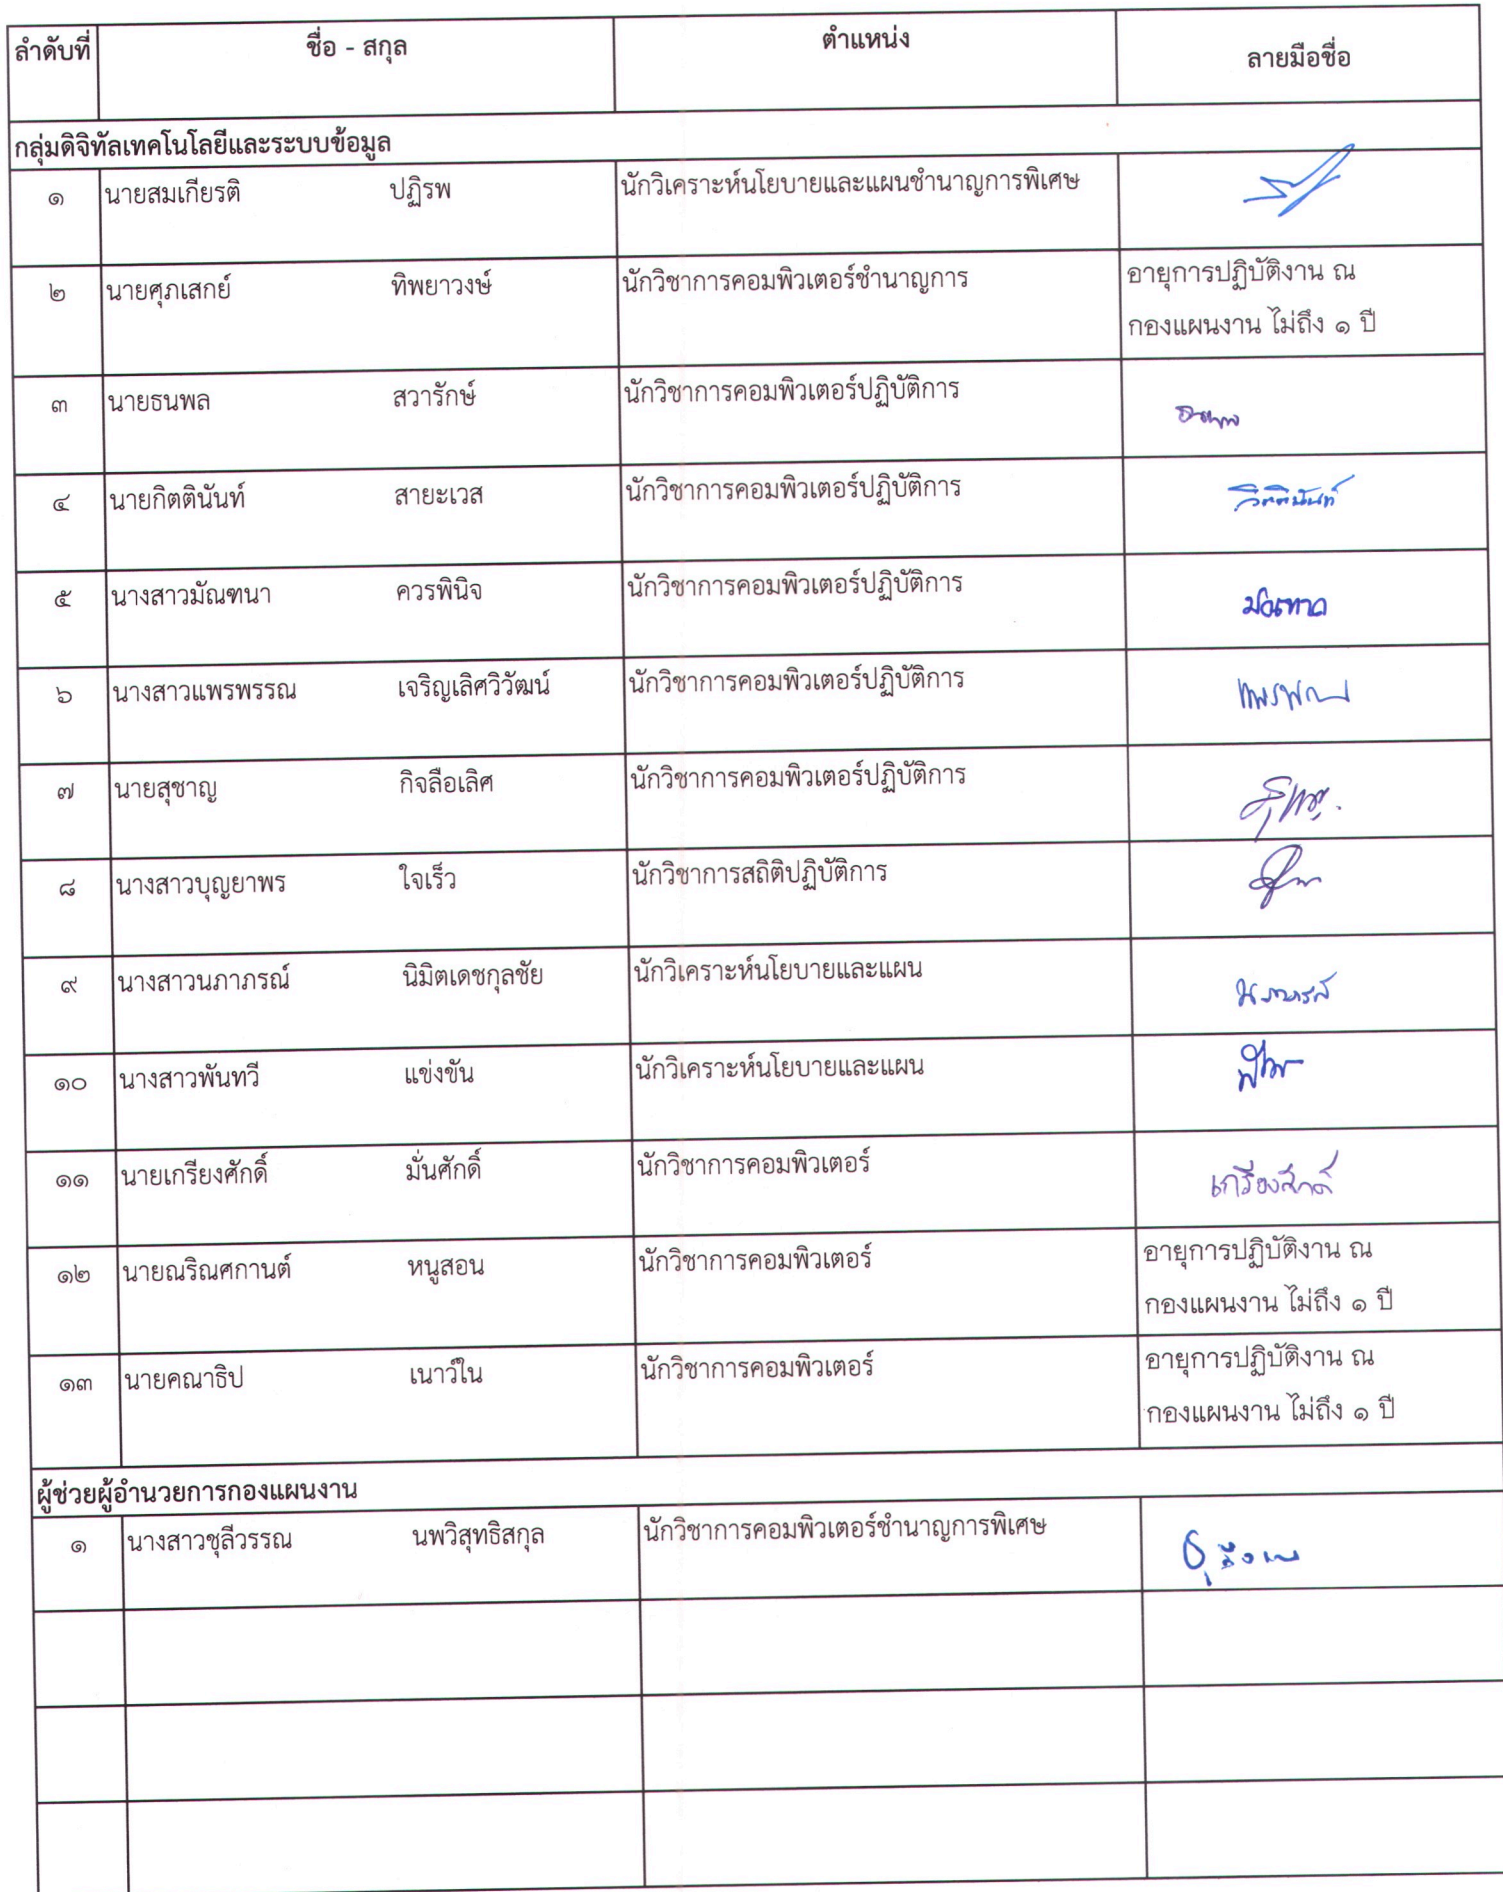 ลำดับที่ ชื่อ - สกุล ตำแหน่ง ลายมือชื่อ
กลุ่มดิจิทัลเทคโนโลยีและระบบข้อมูล
๑ นายสมเกียรติ ปฏิรพ นักวิเคราะห์นโยบายและแผนชำนาญการพิเศษ
๒ นายศุภเสกย์ ทิพยาวงษ์ นักวิชาการคอมพิวเตอร์ชำนาญการ อายุการปฏิบัติงาน ณ
กองแผนงาน ไม่ถึง ๑ ปี
๓ นายธนพล สวารักษ์ นักวิชาการคอมพิวเตอร์ปฏิบัติการ ธนพล
๔ นายกิตตินันท์ สายะเวส นักวิชาการคอมพิวเตอร์ปฏิบัติการ กิตตินันท์
๕ นางสาวมัณฑนา ควรพินิจ นักวิชาการคอมพิวเตอร์ปฏิบัติการ มัณฑนา
๖ นางสาวแพรพรรณ เจริญเลิศวิวัฒน์ นักวิชาการคอมพิวเตอร์ปฏิบัติการ แพรพรรณ
๗ นายสุชาญ กิจลือเลิศ นักวิชาการคอมพิวเตอร์ปฏิบัติการ
๘ นางสาวบุญยาพร ใจเร็ว นักวิชาการสถิติปฏิบัติการ
๙ นางสาวนภาภรณ์ นิมิตเดชกุลชัย นักวิเคราะห์นโยบายและแผน นภาภรณ์
๑๐ นางสาวพันทวี แข่งขัน นักวิเคราะห์นโยบายและแผน
๑๑ นายเกรียงศักดิ์ มั่นศักดิ์ นักวิชาการคอมพิวเตอร์ เกรียงศักดิ์
๑๒ นายณริณศกานต์ หนูสอน นักวิชาการคอมพิวเตอร์ อายุการปฏิบัติงาน ณ
กองแผนงาน ไม่ถึง ๑ ปี
๑๓ นายคณาธิป เนาว์ใน นักวิชาการคอมพิวเตอร์ อายุการปฏิบัติงาน ณ
กองแผนงาน ไม่ถึง ๑ ปี
ผู้ช่วยผู้อำนวยการกองแผนงาน
๑ นางสาวชุลีวรรณ นพวิสุทธิสกุล นักวิชาการคอมพิวเตอร์ชำนาญการพิเศษ